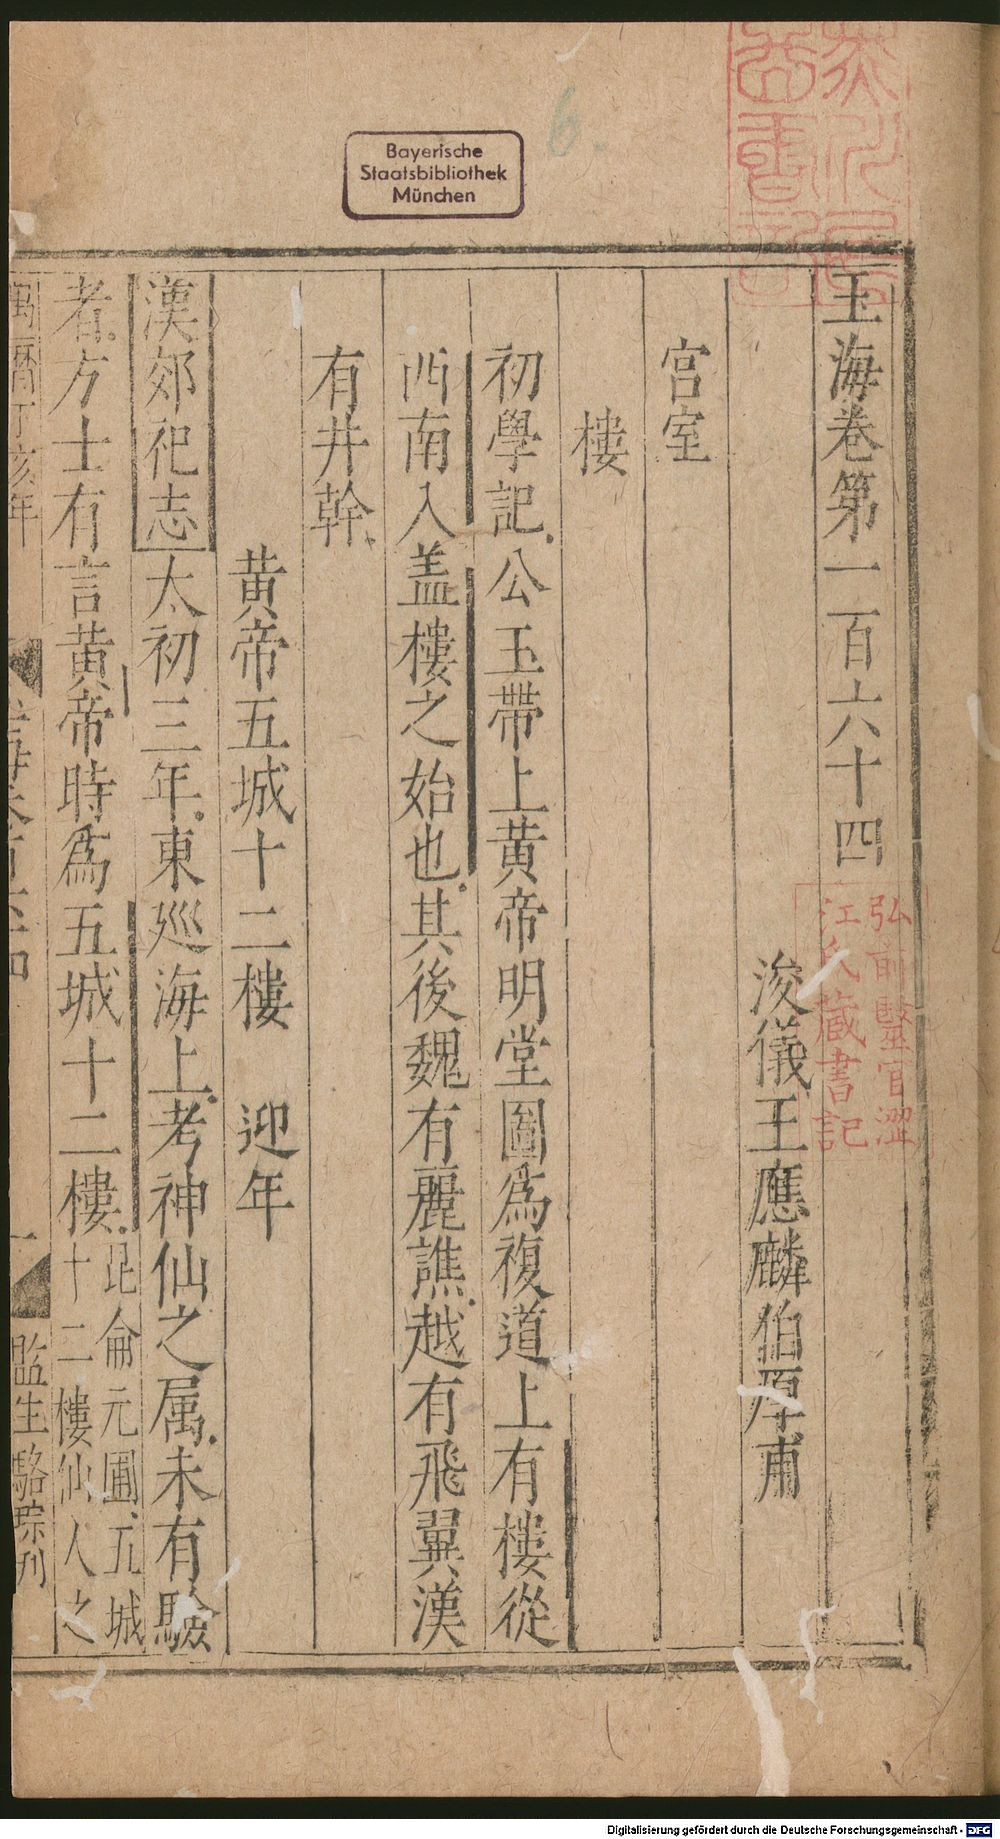 Bayerische
Staatsbibliothek
München
6.
玉海卷第一百六十四
弘前醫官澀
江氏藏書記
浚儀王應麟伯厚甫
宮室
樓
初學記公玉帶上黄帝明堂圖爲複道上有樓從
西南入盖樓之始也其後魏有麗譙越有飛翼漢
有井幹
黄帝五城十二樓　迎年
漢郊祀志太初三年東廵海上考神仙之属未有驗
者方士有言黄帝時爲五城十二樓昆侖元圃五城
十二樓仙人之
萬曆丁亥年
玉海卷百六十四
一
監生駱琮刊
Digitalisierung gefördert durch die Deutsche Forschungsgemeinschaft - DFG